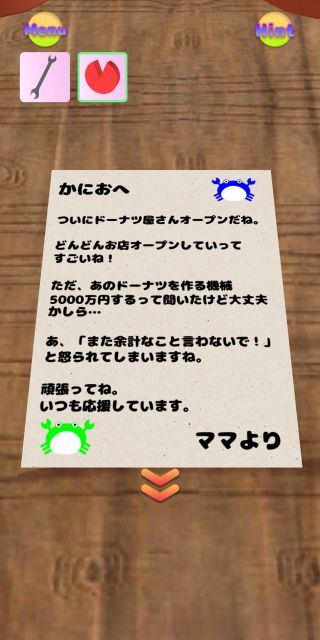 Menu
Hint
かにおへ
ついにドーナツ屋さんオープンだね。
どんどんお店オープンしていって
すごいね！
ただ、あのドーナツを作る機械
5000万円するって聞いたけど大丈夫
かしら…
あ、「また余計なこと言わないで！」
と怒られてしまいますね。
頑張ってね。
いつも応援しています。
ママより